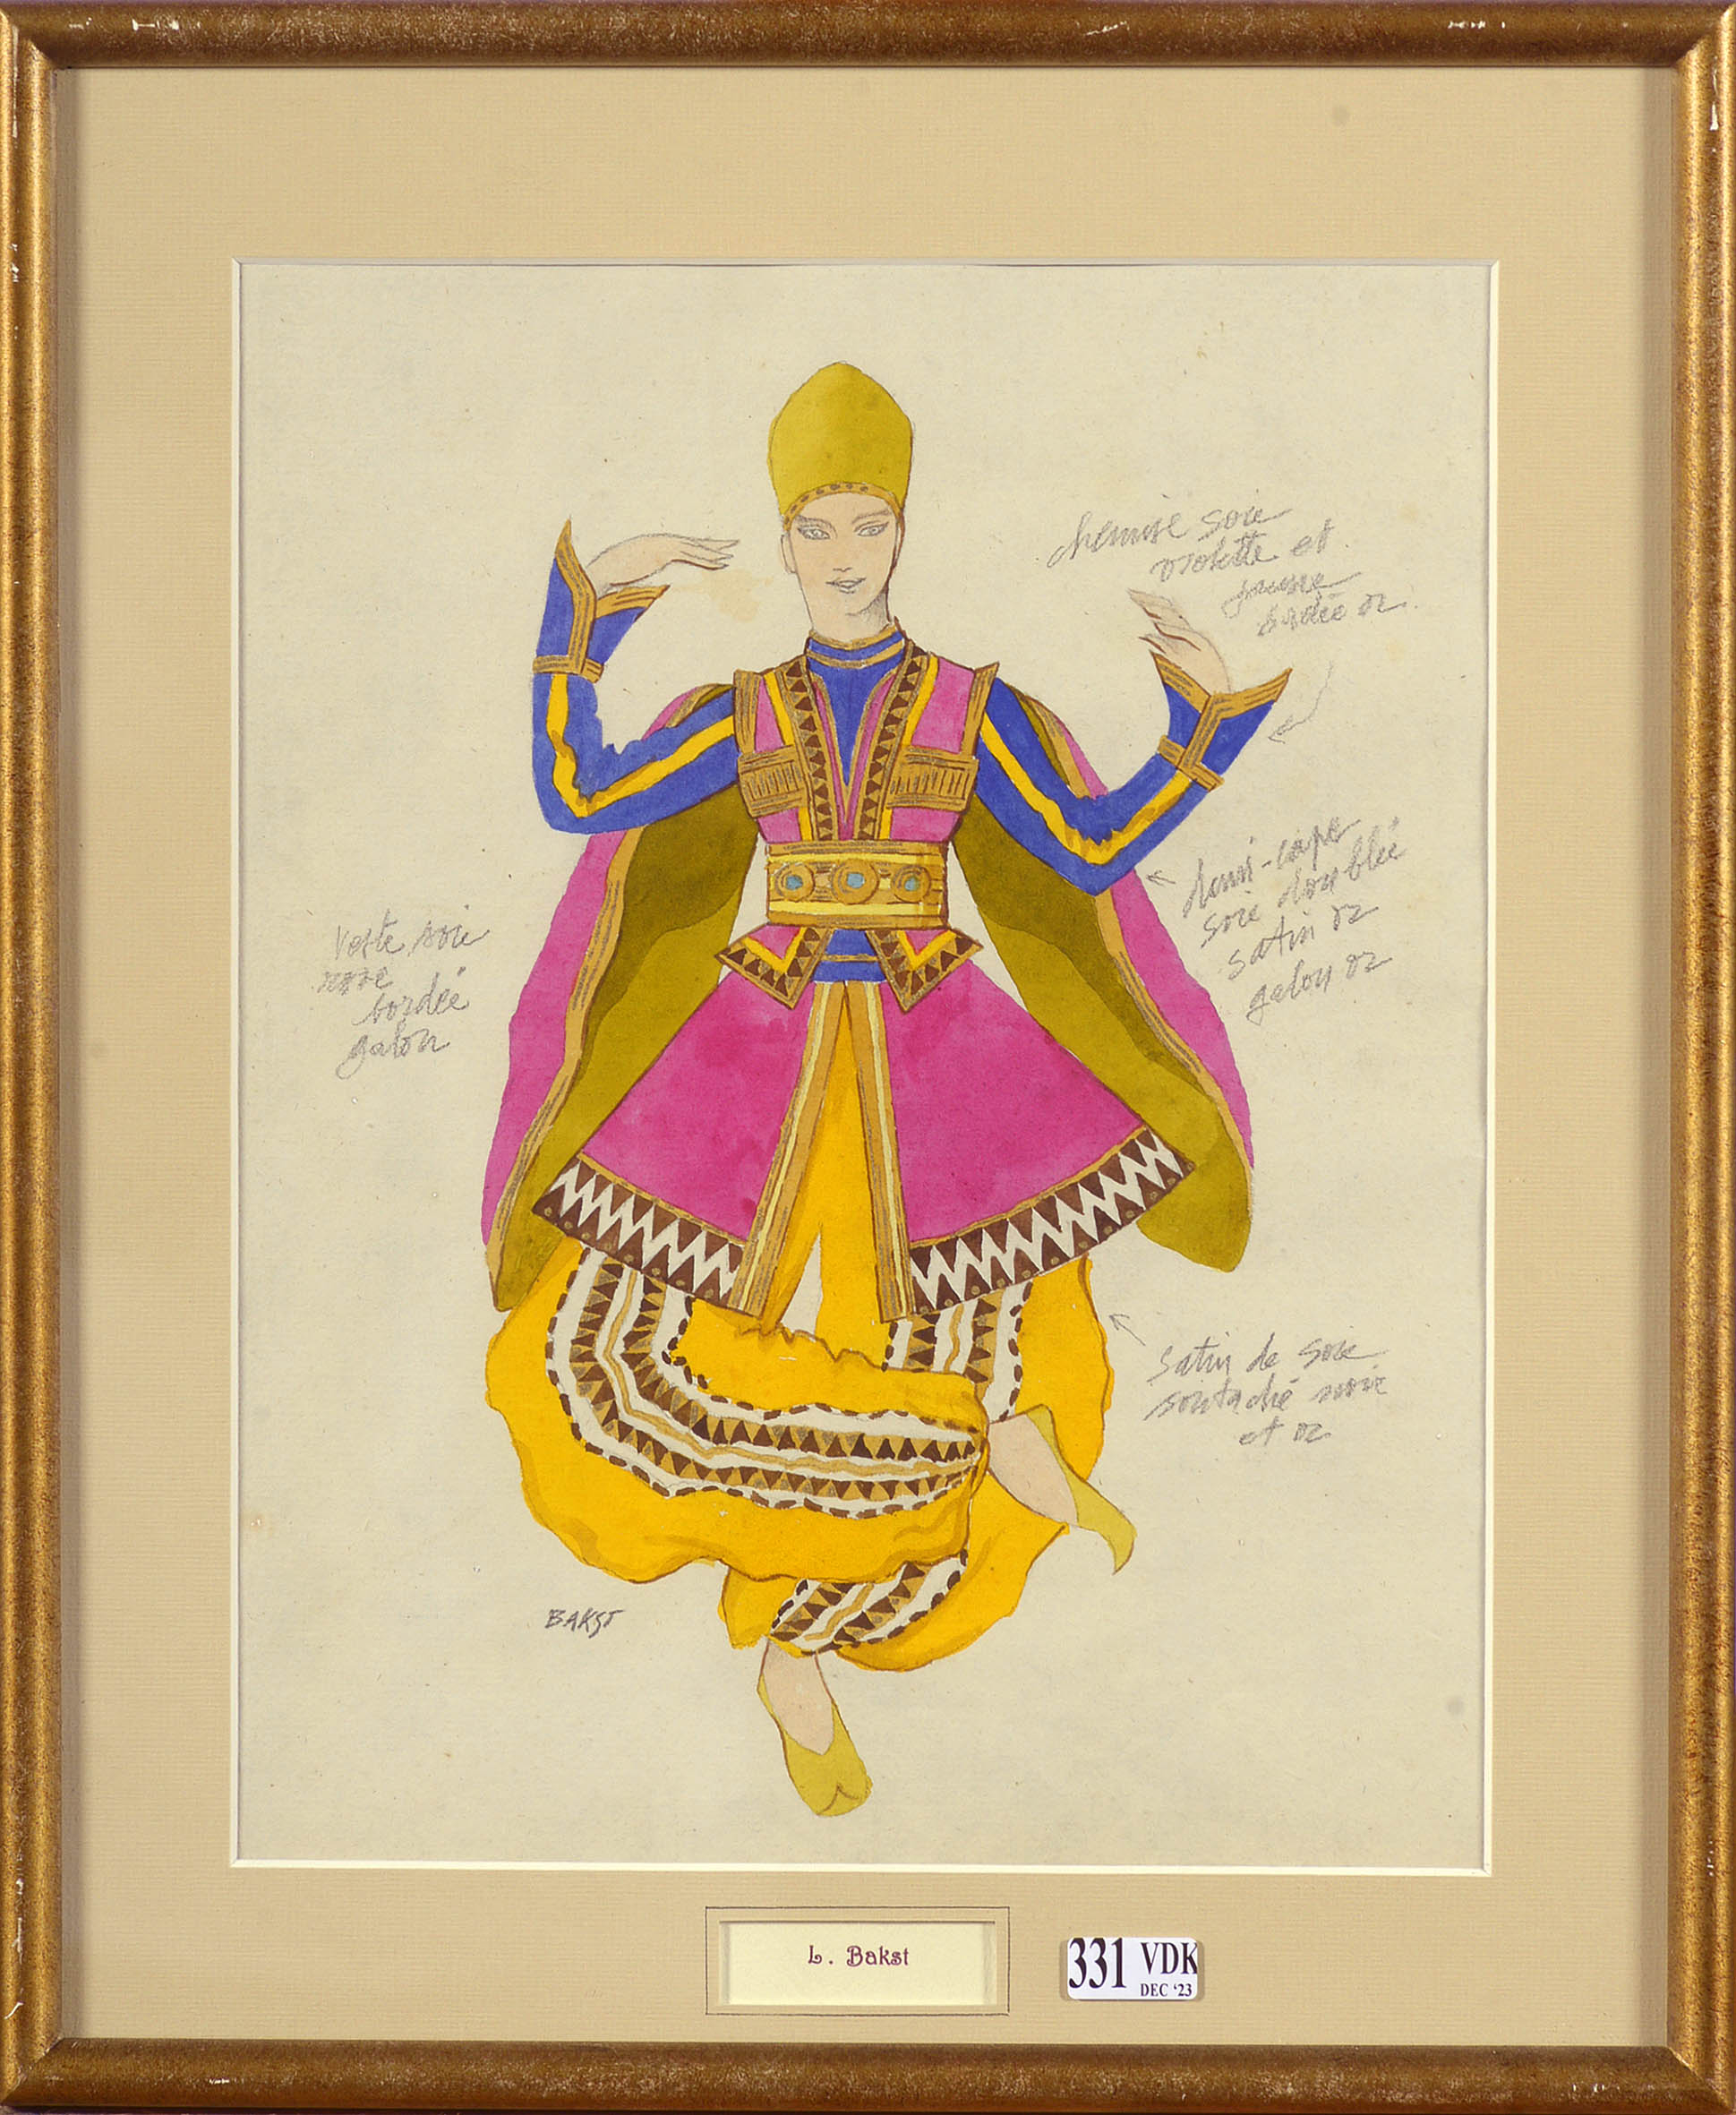 chemise soie
violette et
jaune
bordée or.
demi-cape
soie doublée
satin or
galon or
Veste soie
rose
bordée
galon
satin de soie
soutaché noir
et or
BAKST
L. Bakst
331 VDK
DEC '23